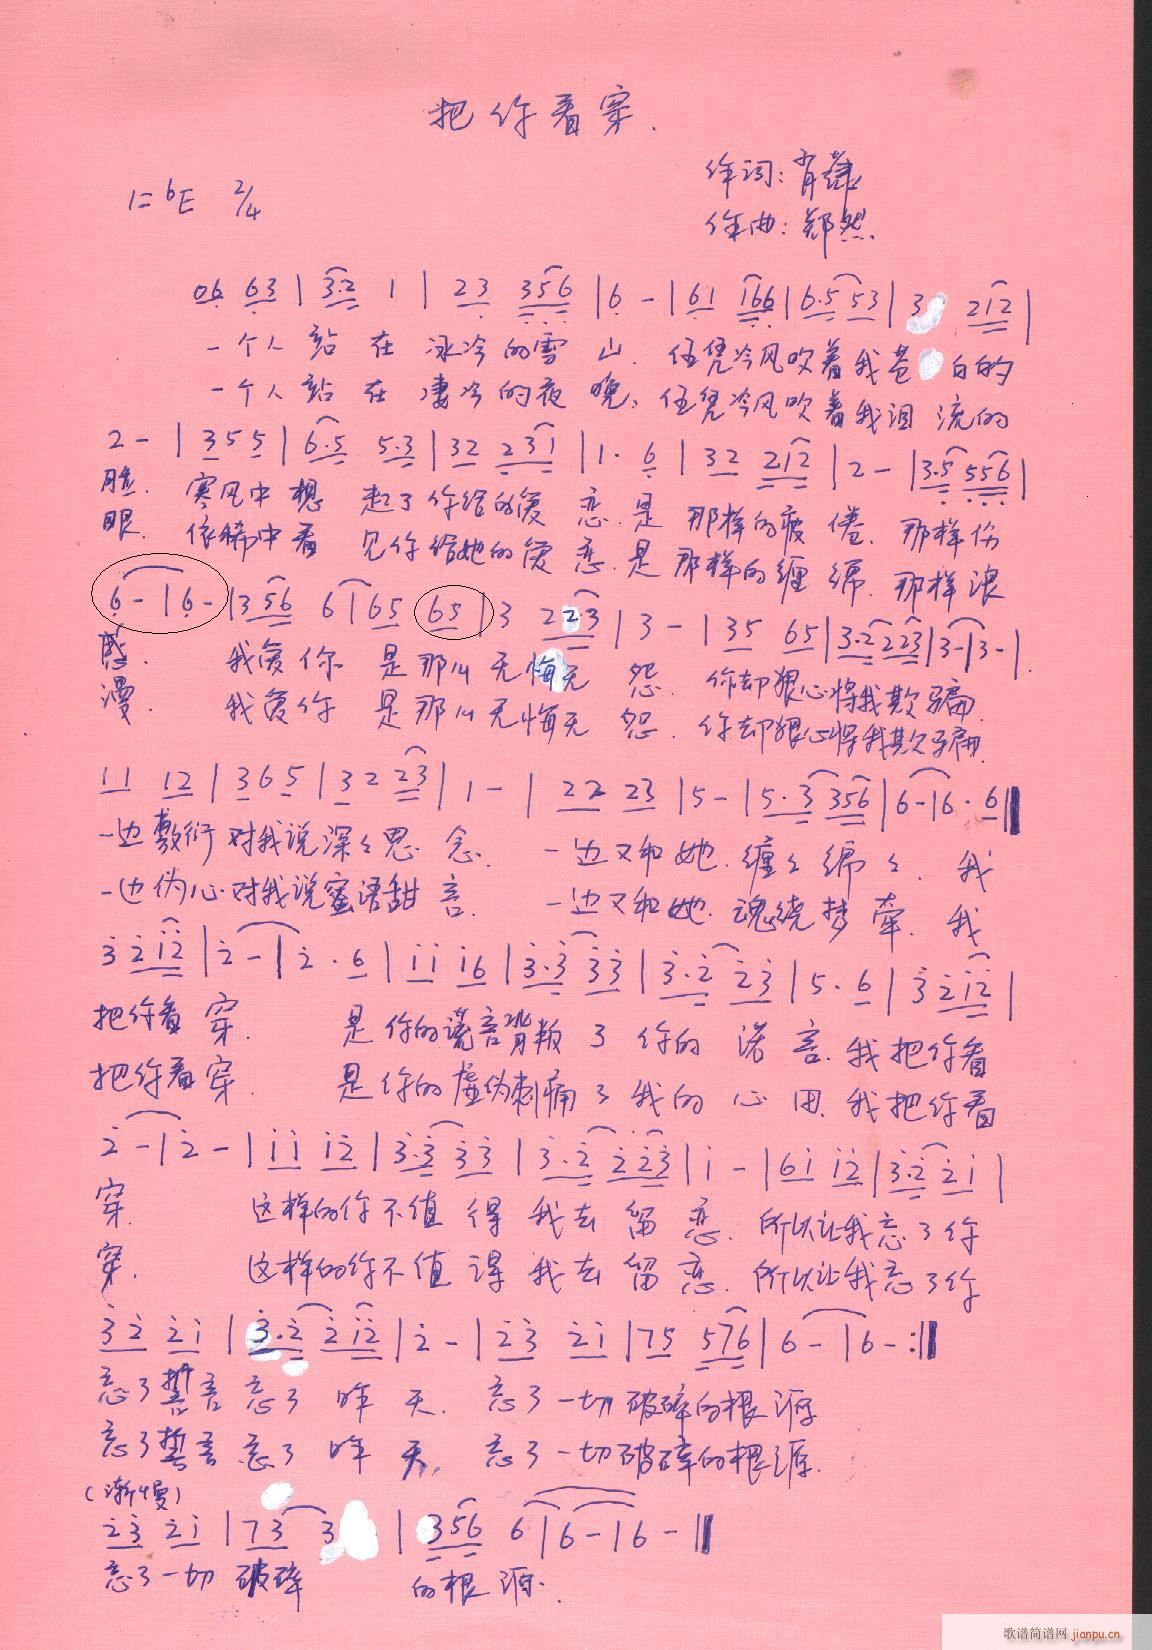 把你看穿.
1=bE 2/4
作词:肖
作曲:郑然
06 63 | 3·2 1 | 23 356 | 6 - | 61 166 | 6·5 53 | 3 212 |
一个人站在冰冷的雪山.任凭冷风吹着我苍白的
一个人站在凄冷的夜晚,任凭冷风吹着我泪流的
2 - | 355 | 6·5 5·3 | 32 231 | 1· 6 | 32 212 | 2 - | 3·5 556 |
脸.寒风中想起了你给的爱恋.是那样的疲倦.那样伤
眼.依稀中看见你给她的爱恋.是那样的缠绵.那样浪
6 - | 6 - | 356 6 | 65 65 | 3 22·3 | 3 - | 35 65 | 3·2 223 | 3 - | 3 - |
感.我爱你是那么无悔无怨.你却狠心将我欺骗.
漫.我爱你是那么无悔无怨.你却狠心将我欺骗.
11 12 | 365 | 32 23 | 1 - | 22 23 | 5 - | 5·3 356 | 6 - | 6· 6 ‖
一边敷衍对我说深々思念.一边又和她.缠々绵々.我
一边伪心对我说蜜语甜言.一边又和她.魂绕梦牵.我
3 212 | 2 - | 2· 6 | 11 16 | 3·3 33 | 3·2 23 | 5· 6 | 3 212 |
把你看穿.是你的谎言背叛了你的诺言.我把你看
把你看穿.是你的虚伪刺痛了我的心田.我把你看
2 - | 2 - | 11 12 | 3·3 33 | 3·2 223 | 1 - | 61 12 | 3·2 21 |
穿.这样的你不值得我去留恋.所以让我忘了你
穿.这样的你不值得我去留恋.所以让我忘了你
32 21 | 3·2 212 | 2 - | 23 21 | 75 576 | 6 - | 6 - :‖
忘了誓言忘了昨天.忘了一切破碎的根源
忘了誓言忘了昨天,忘了一切破碎的根源.
(渐慢)
23 21 | 73 3 | 356 6 | 6 - | 6 - ‖
忘了一切破碎的根源.
歌谱简谱网 jianpu.cn